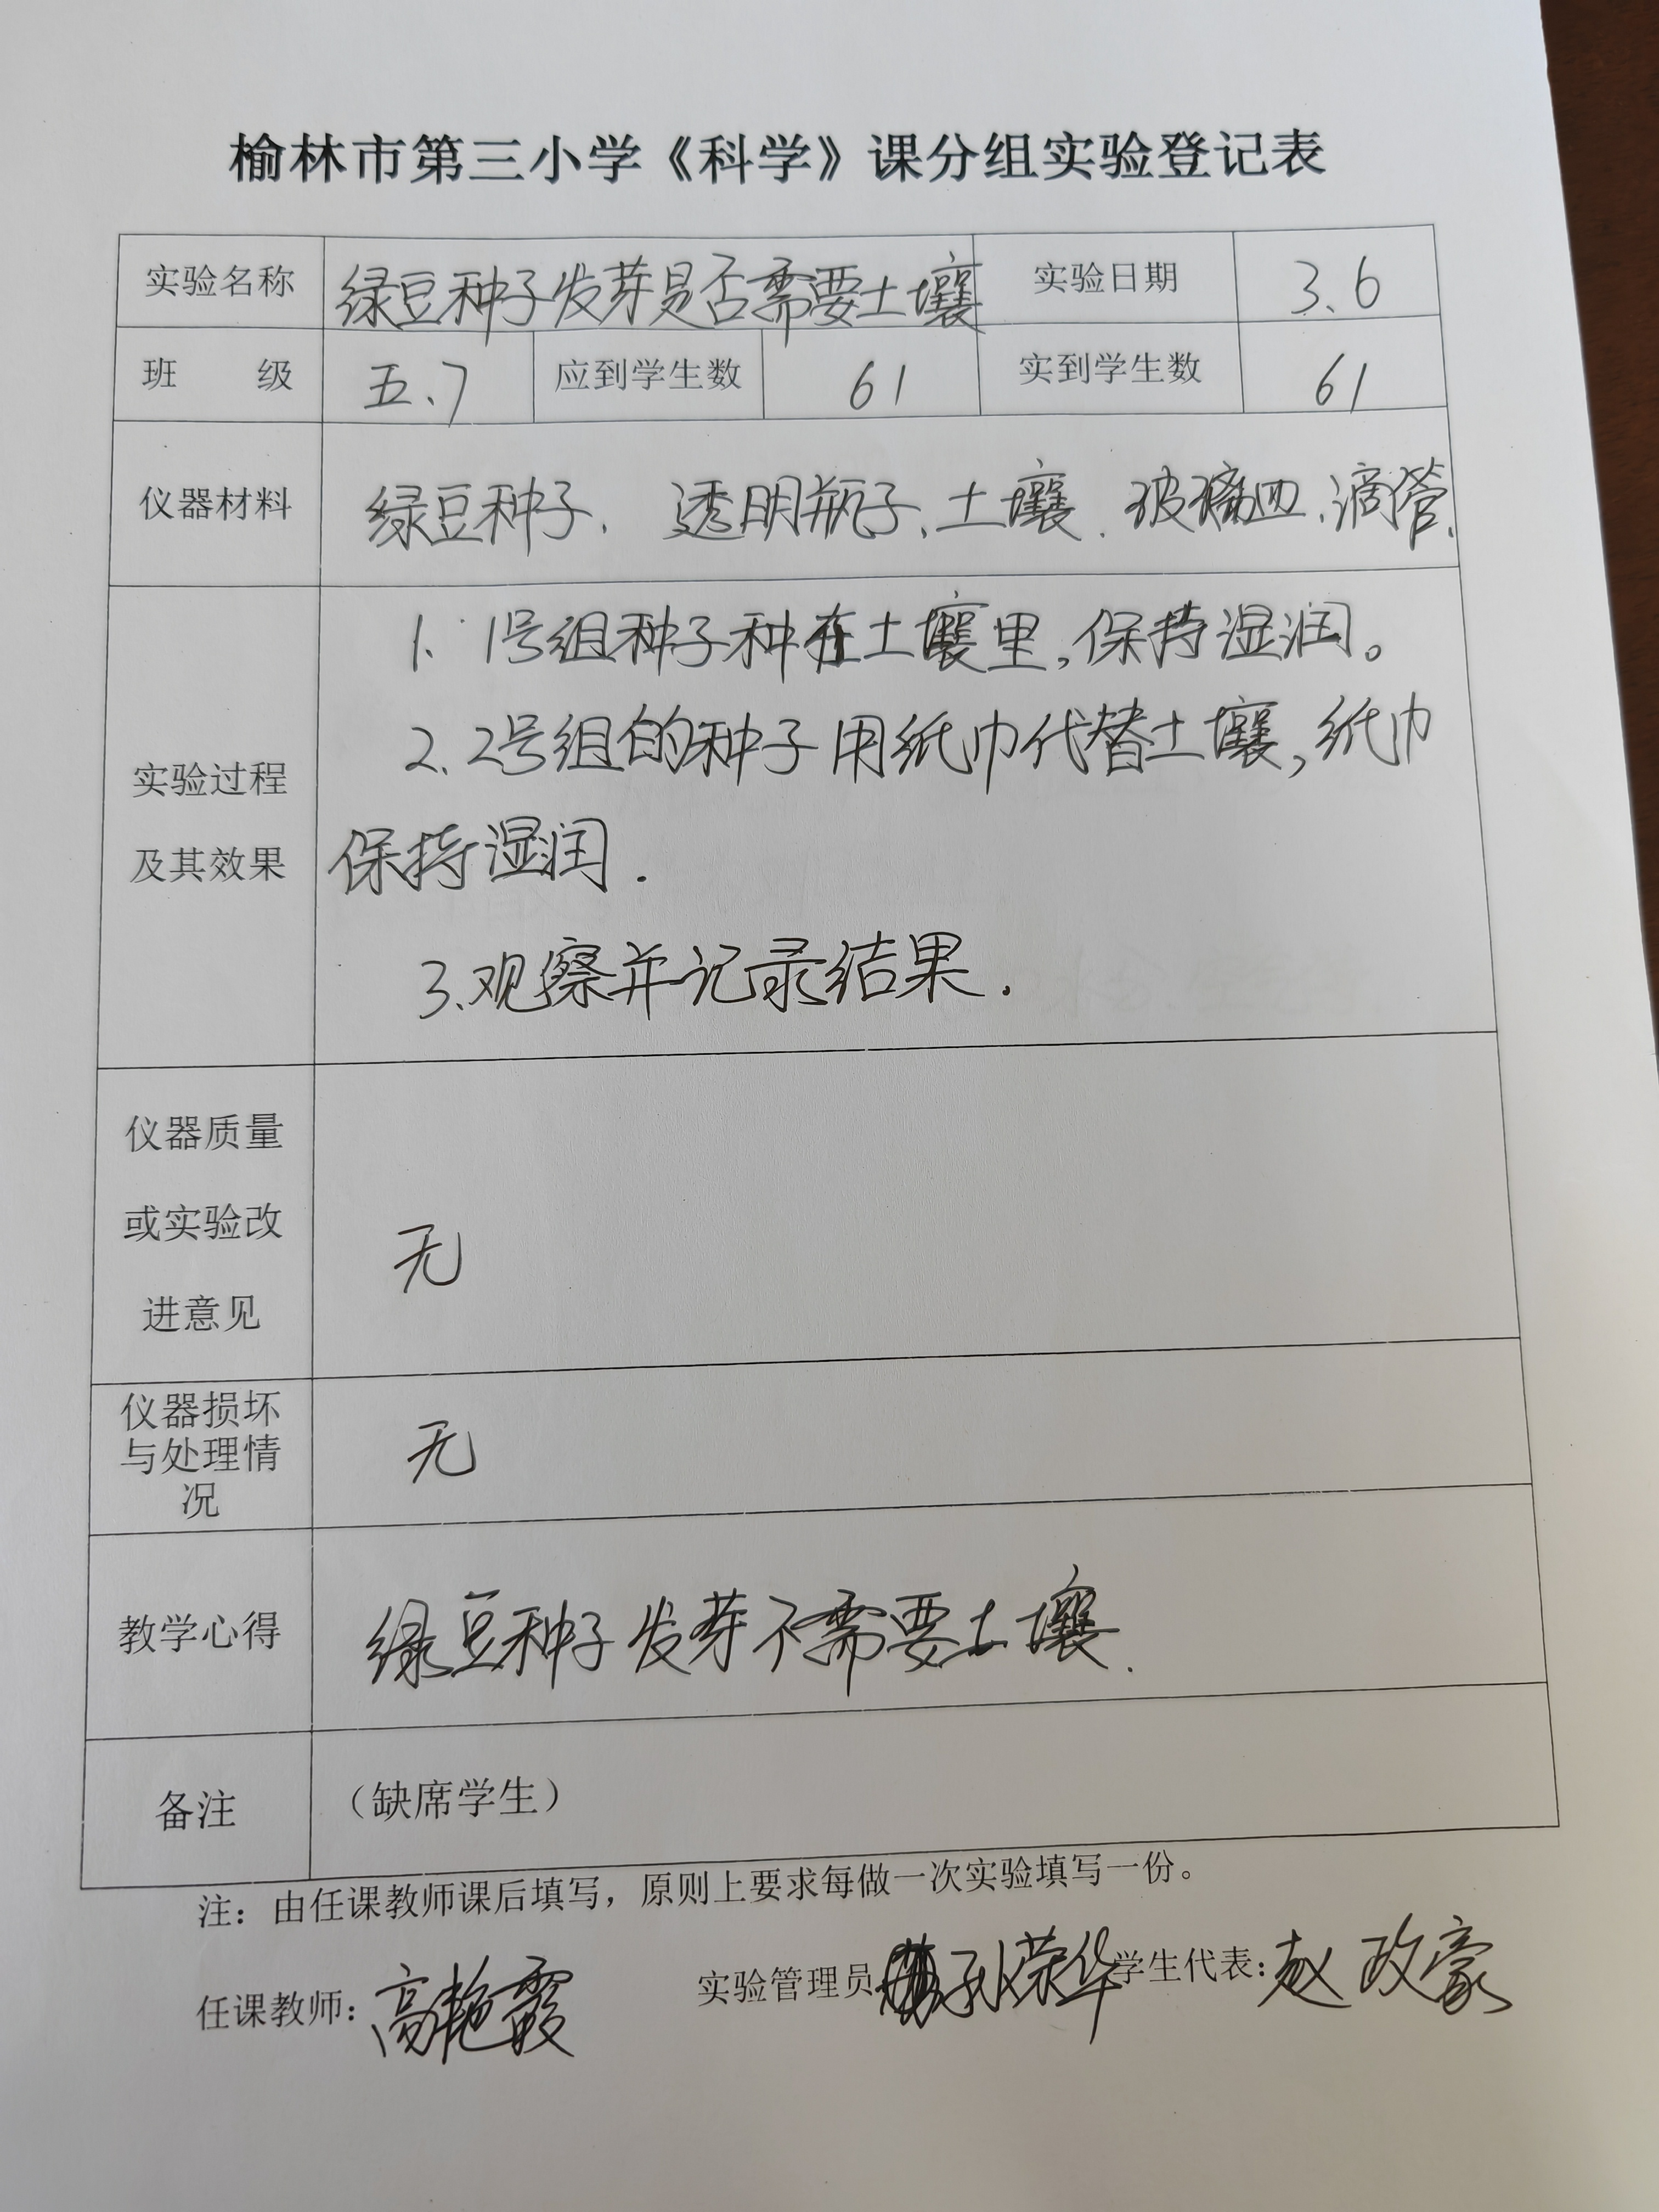 榆林市第三小学《科学》课分组实验登记表
实验名称 绿豆种子发芽是否需要土壤 实验日期 3.6
班 级 五.7 应到学生数 61 实到学生数 61
仪器材料 绿豆种子. 透明瓶子、土壤. 玻璃皿.滴管.
1. 1号组种子种在土壤里,保持湿润。
2. 2号组的种子用纸巾代替土壤,纸巾
实验过程
及其效果 保持湿润.
3.观察并记录结果.
仪器质量
或实验改
进意见
无
仪器损坏
与处理情
况
无
教学心得 绿豆种子发芽不需要土壤.
备注 （缺席学生）
注：由任课教师课后填写，原则上要求每做一次实验填写一份。
任课教师：高艳霞 实验管理员 孙荣华 学生代表：赵政豪